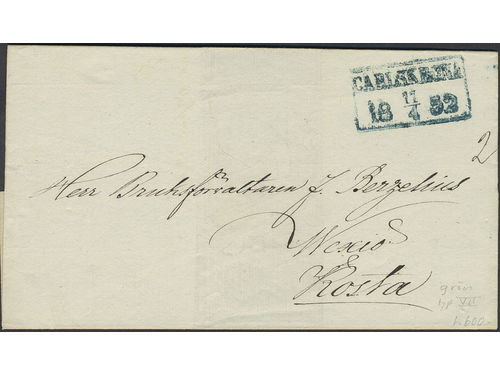 CARLSKRONA
18 11/4 52
2
Herr Bruksförvaltaren J. Berzelius
Wexio
&
Kosta
grön
typ VII